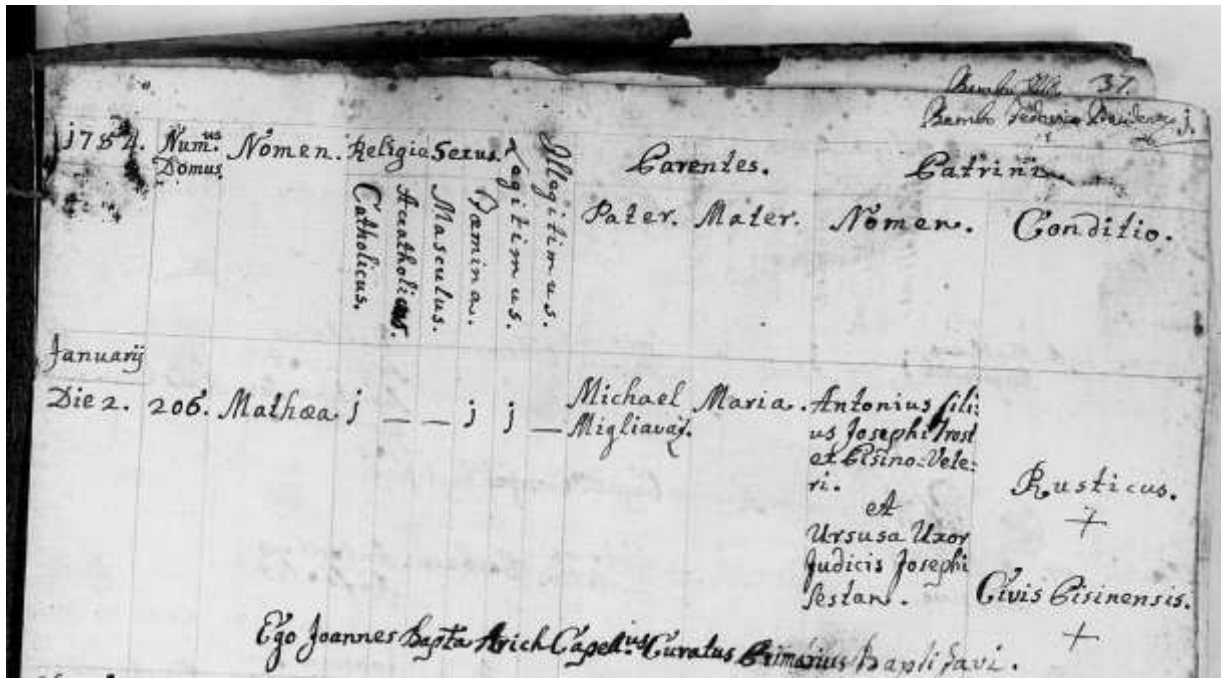 37.
Bambo
j.
1784. Num.us Nomen. Religio Sexus. Legitimus. Illegitimus. Parentes. Patrini.
Domus
Catholicus. Accatholicus. Masculus. Fæmina. Pater. Mater. Nomen. Conditio.
Januarij
Die 2. 206. Mathæa. j — — j j — Michael Maria. Antonius fili:
Migliavaz. us Josephi Trost
et Pisino-Vete:
ri. Rusticus.
et +
Ursusa Uxor
Judicis Josephi
Sestan. Civis Pisinensis.
+
Ego Joannes Bapta Arich Capel.us Curatus Primarius baptisavi.